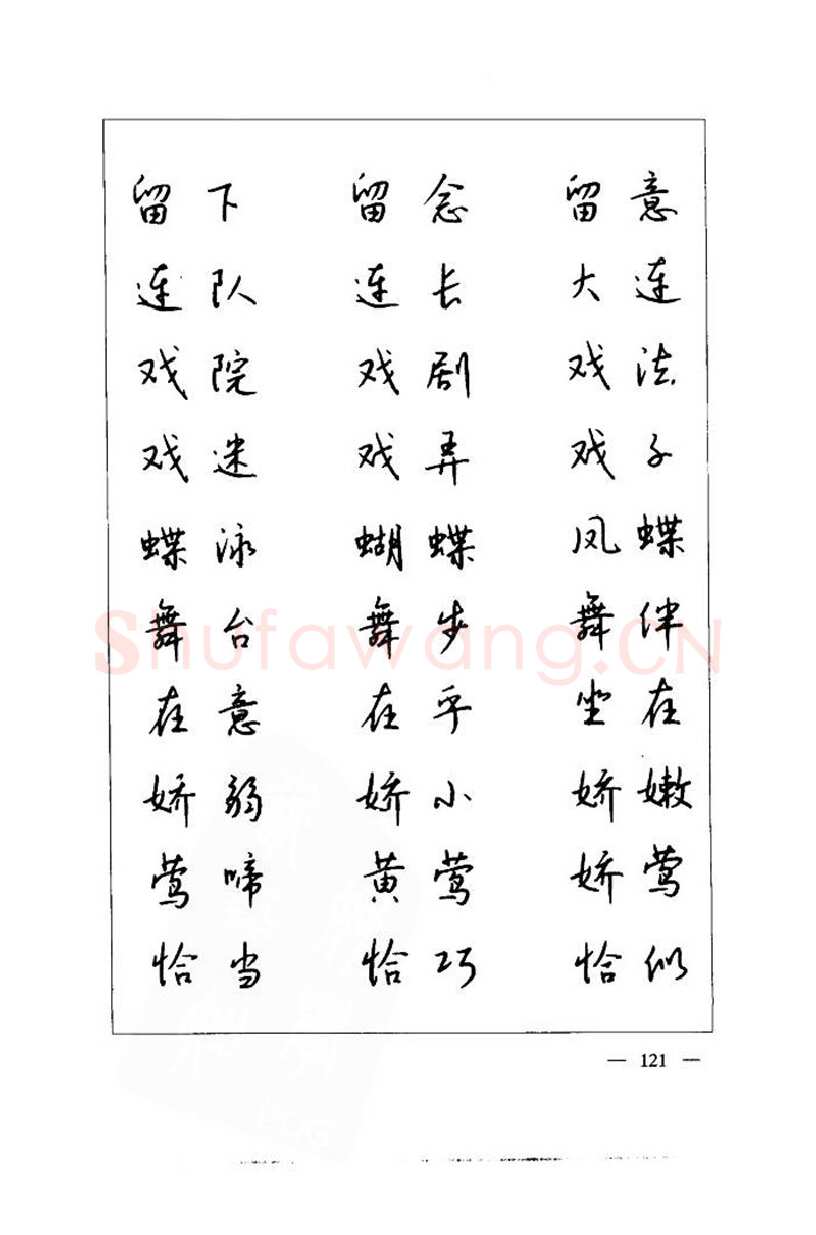 留下 留念 留意
连队 连长 大连
戏院 戏剧 戏法
戏迷 戏弄 戏子
蝶泳 蝴蝶 凤蝶
舞台 舞步 舞伴
在意 在乎 坐在
娇弱 娇小 娇嫩
莺啼 黄莺 娇莺
恰当 恰巧 恰似
— 121 —
Shufawang.CN